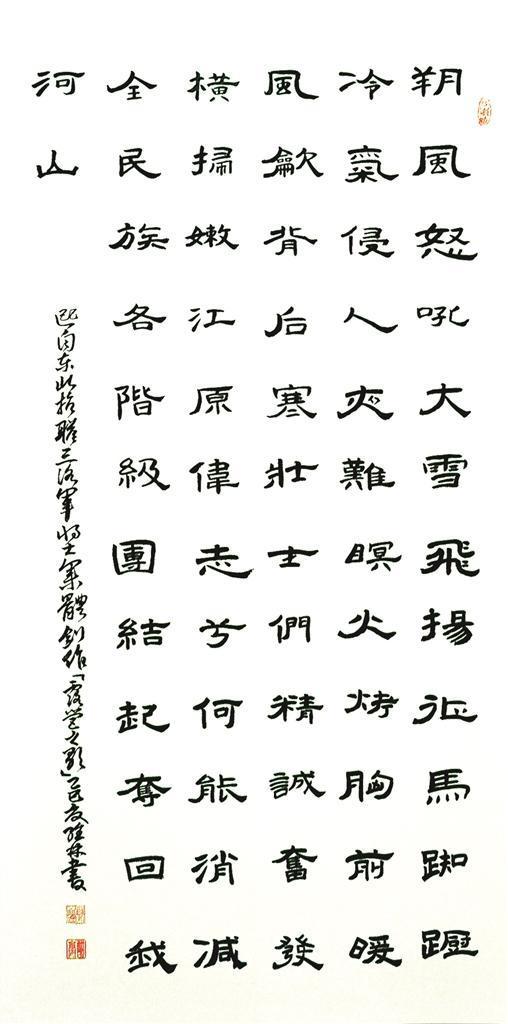 朔風怒吼大雪飛揚征馬踟躕
冷氣侵人夜難瞑火烤胸前暖
風龡背后寒壯士們精誠奮發
橫掃嫩江原偉志兮何能消減
全民族各階級團結起奪回我
河山
自东北抗聯三路軍將士集體創作「露營之歌」書